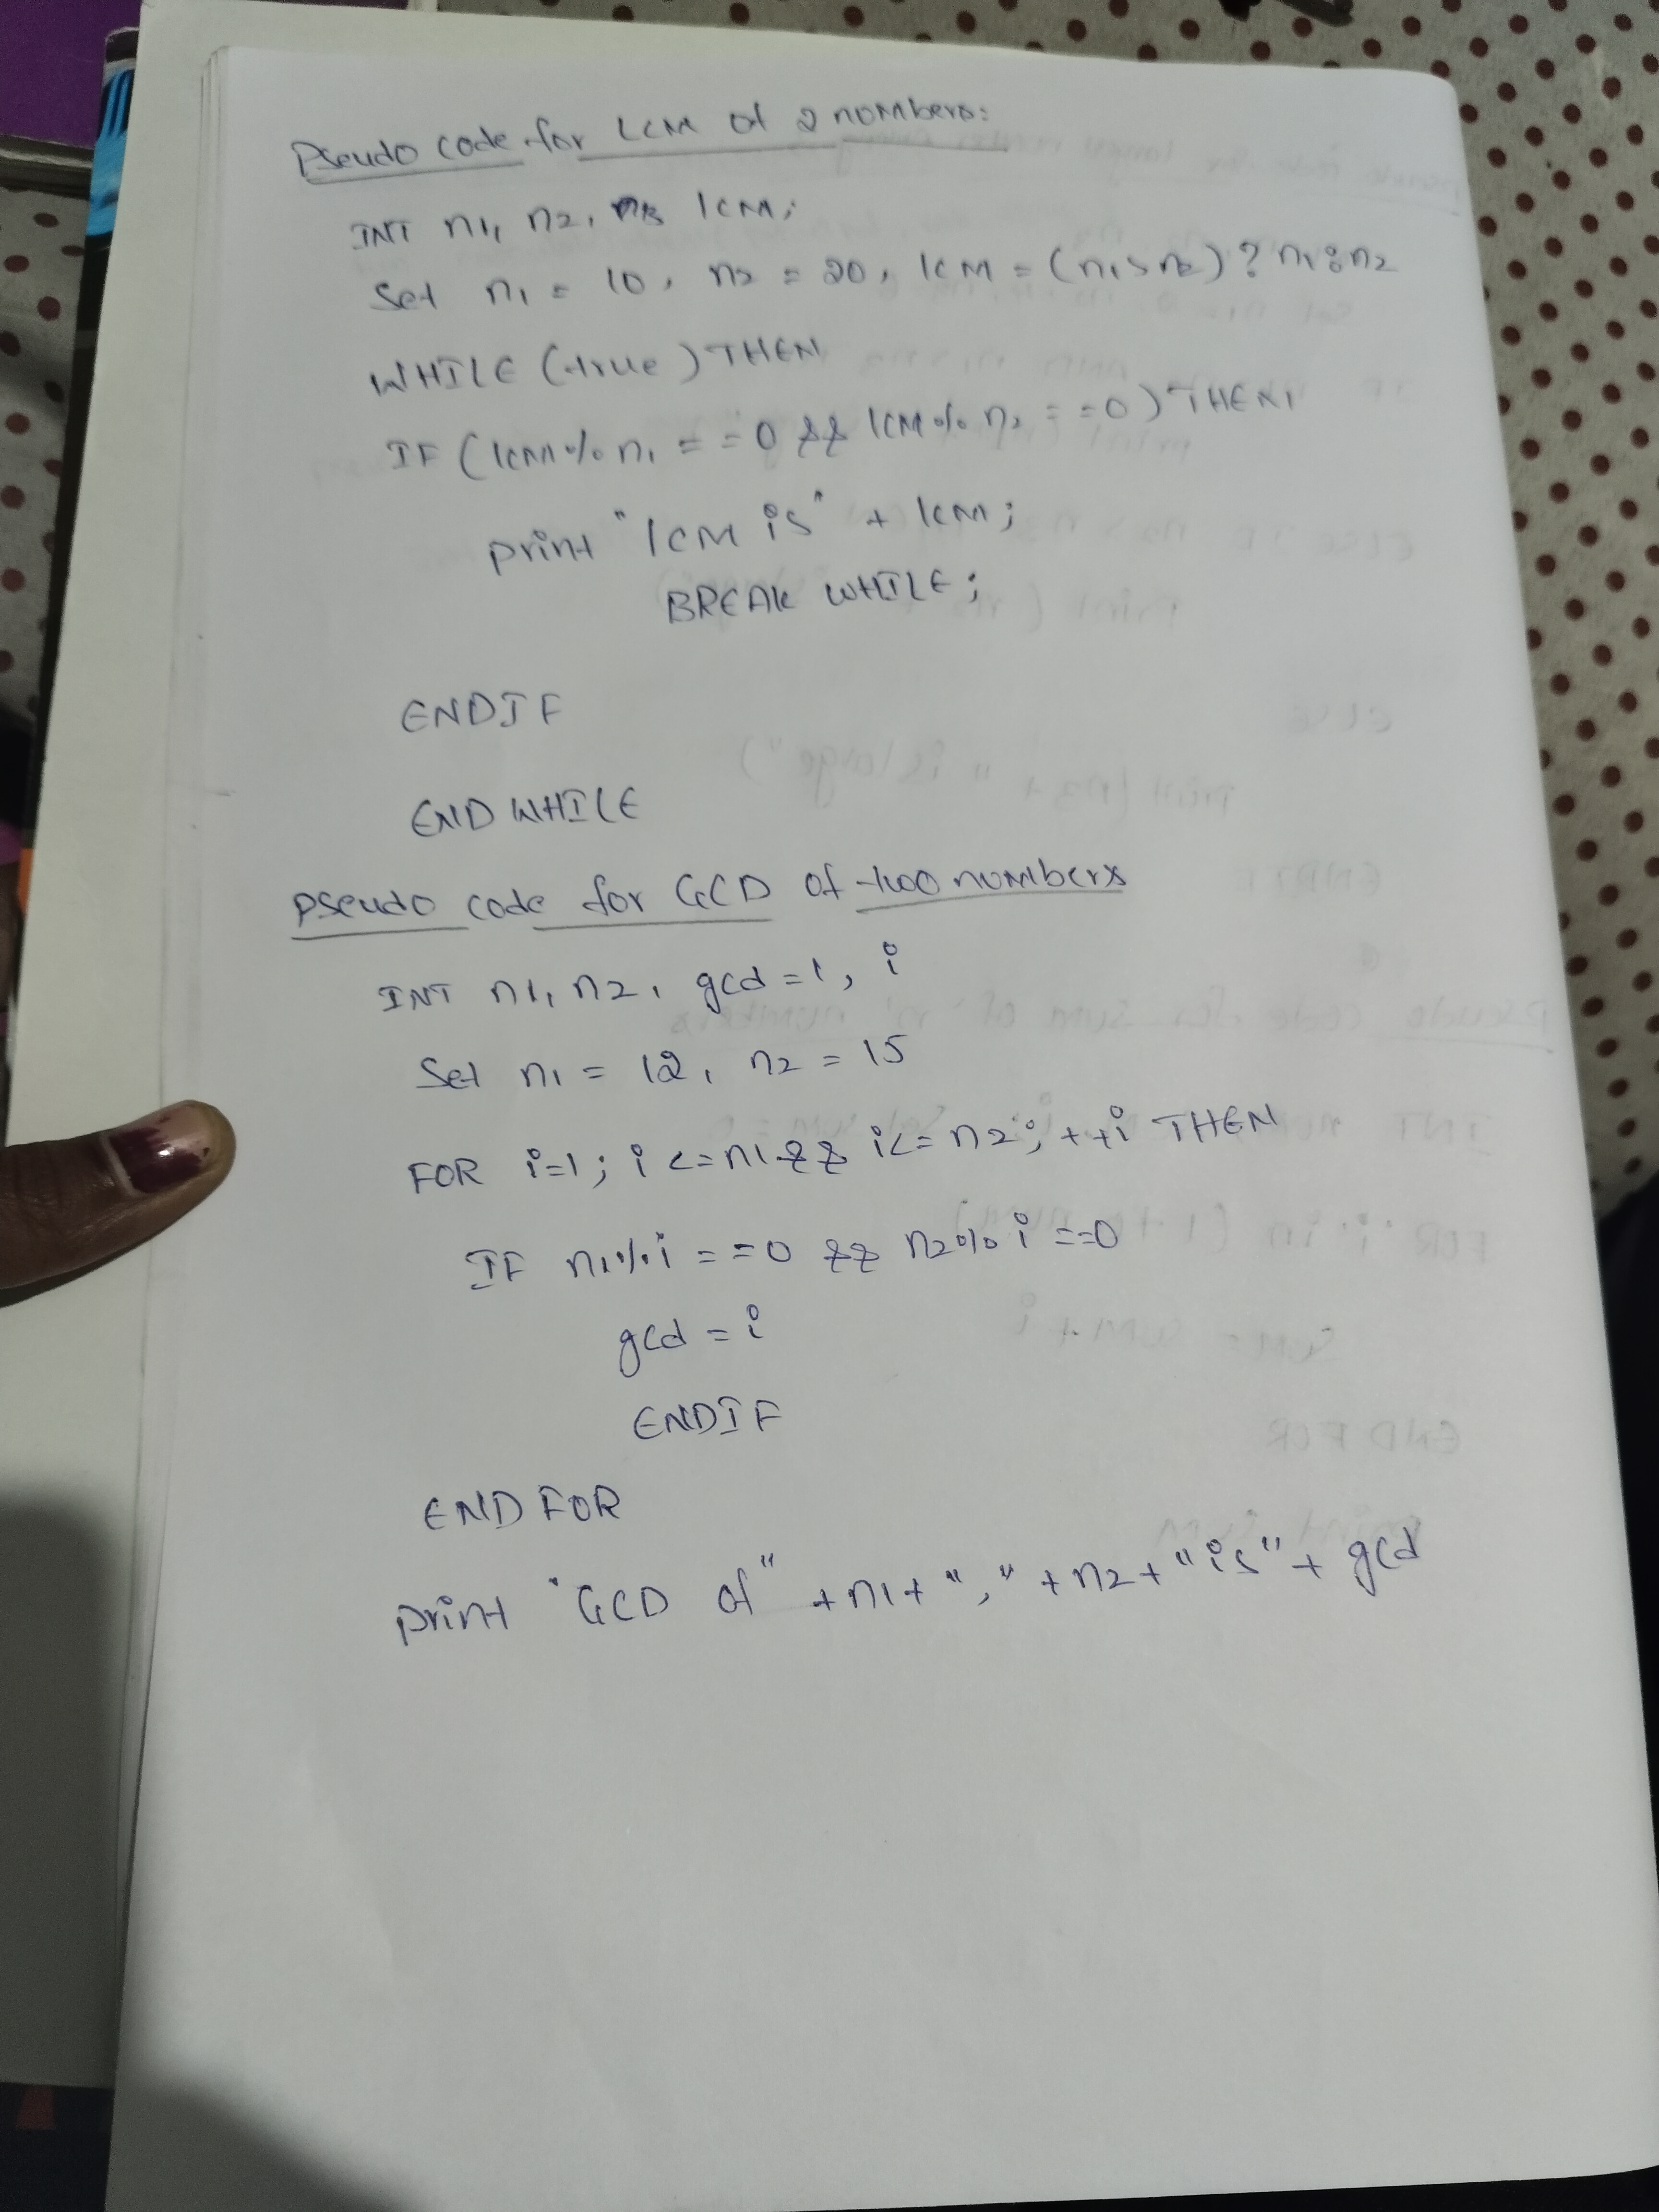 Pseudo code for LCM of 2 numbers:
INT n1, n2, lCM;
Set n1 = 10, n2 = 20, lCM = (n1>n2) ? n1:n2
WHILE (true) THEN
IF (lCM % n1 == 0 && lCM % n2 == 0) THEN
print "lCM is" + lCM;
BREAK WHILE;
ENDIF
END WHILE
Pseudo code for GCD of two numbers
INT n1, n2, gcd = 1, i
Set n1 = 12, n2 = 15
FOR i=1; i <= n1 && i <= n2; ++i THEN
IF n1 % i == 0 && n2 % i == 0
gcd = i
ENDIF
END FOR
print "GCD of" + n1 + "," + n2 + "is" + gcd